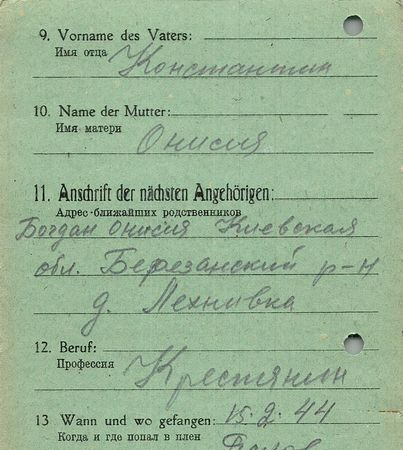 9. Vorname des Vaters:
Имя отца Константин
10. Name der Mutter:
Имя матери Онисия
11. Anschrift der nächsten Angehörigen:
Адрес ближайших родственников
Богдан Онисия Киевская
обл. Березанский р-н
д. Лехнивка
12. Beruf:
Профессия Крестянин
13 Wann und wo gefangen: 15.2.44
Когда и где попал в плен